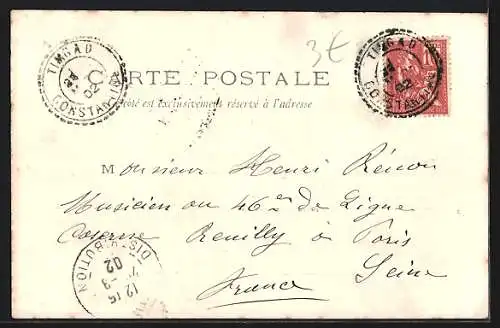 3€
TIMGAD
02
CONSTANTINE
TIMGAD
02
CONSTANTINE
CARTE POSTALE
Ce côté est exclusivement réservé à l'adresse
Monsieur Henri
Musicien au 46e de Ligne
Caserne Reuilly à Paris
France Seine
DISTRIBUTION
12 15
7-3
02